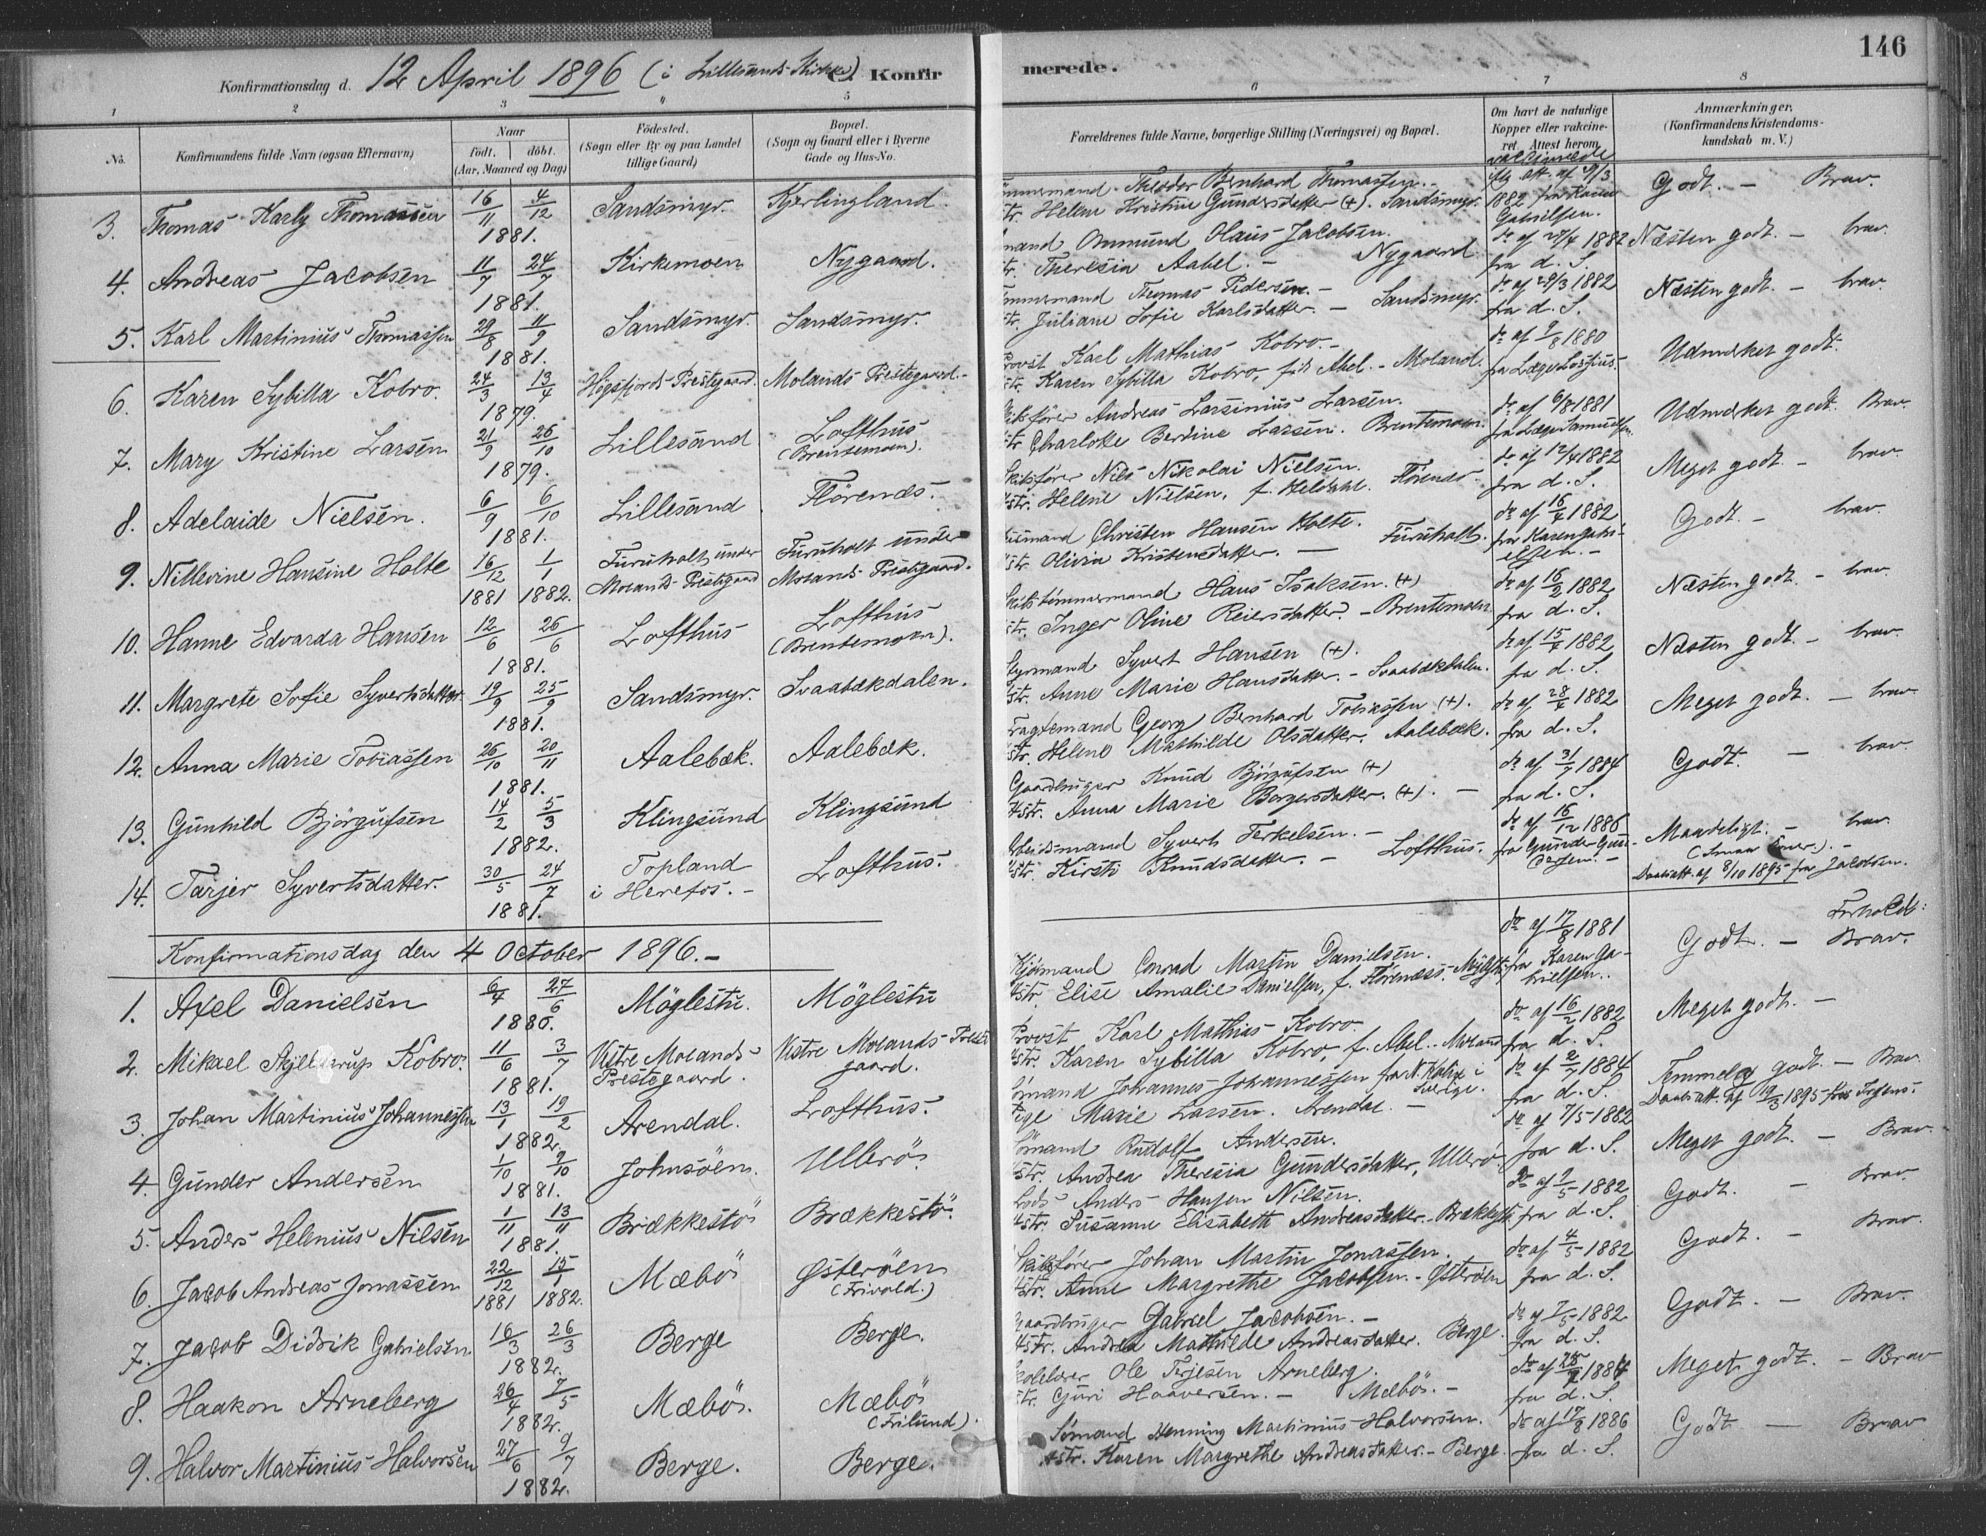 146
Konfirmationsdag d. 12 April 1896 (i Lillesands Kirke) C. Konfirmerede.
1 2 3 4 5 6 7 8
No.
Konfirmandens fulde Navn (ogsaa Efternavn)
Naar
født. døbt.
(Aar, Maaned og Dag)
Fødested.
(Sogn eller By og paa Landet
tillige Gaard)
Bopæl.
(Sogn og Gaard eller i Byerne
Gade og Hus-No.
Forældrenes fulde Navne, borgerlige Stilling (Næringsvei) og Bopæl.
Om havt de naturlige
Kopper eller vakcine-
ret. Attest herom.
Anmærkninger.
(Konfirmandens Kristendoms-
kundskab m. V.)
3. Thomas Karly Thomassen 16/11 4/12 1881. Sandsmyr. Kjerlingland.
Theodor Bernhard Thomassen.
Helene Kristine Gundersdatter (+). Sandsmyr.
vaccinerede flg att. af 9/3 1882 fra Karen Gabrielsen.
Godt. – Brav.
4. Andreas Jacobsen 11/7 24/7 1881. Kirkemoen Nygaard.
Hans Jacobsen.
Theresia Aabel. – Nygaard
do af 27/4 1882 fra d. S.
Næsten godt. – brav.
5. Karl Martinius Thomassen 29/8 11/9 1881. Sandsmyr. Sandsmyr.
Thomas Pedersen. –
Juliane Sofie Karlsdatter. – Sandsmyr.
do af 29/3 1882 fra d. S.
Næsten godt. – brav.
6. Karen Sybilla Kobro. 24/3 13/4 1879. Høgsfjords Prestegaard. Molands Prestegaard. –
Provst Karl Mathias Kobro. –
Karen Sybilla Kobro, født Abel. – Moland.
do af 9/8 1880 fra Læge
Udmærket godt.
7. Mary Kristine Larsen 21/9 26/10 1879. Lillesand Lofthus (Brentemoen).
Andreas Larsinius Larsen.
Charlotte Berdine Larsen. Brentemoen.
do af 6/8 1881 fra Læge Samuelsen.
Udmærket godt. Brav.
8. Adelaide Nielsen. 6/9 6/10 1881. Lillesand Flörenæs.
Skibsfører Nils Nikolai Nielsen.
Helene Nielsen, f. Flörenæs.
do af 12/4 1882 fra d. S.
Meget godt. – brav.
9. Nillevine Hansine Holte 16/12 1881 1/1 1882. Furuholt under Molands Prestegaard Furuholt under Molands Prestegaard.
Christen Hansen Holte.
Olivia Kristensdatter. – Furuholt.
do af 16/4 1882 fra Karen Gabrielsen. –
Godt. – brav.
10. Hanne Edvarda Hansen 12/6 26/6 1881. Lofthus Lofthus (Brentemoen).
Hans Isaksen. (+)
Inger Oline Reiersdatter. – Brentemoen
do af 16/2 1882 fra d. S.
Næsten godt. – brav.
11. Margrete Sofie Syvertsdatter 19/9 25/9 1881. Sandsmyr. Svaabækdalen.
Syvert Hansen (+).
Anne Marie Hansdatter. – Svaabækdalen.
do af 15/4 1882 fra d. S.
Næsten godt. – brav.
12. Anna Marie Tobiassen 26/10 20/11 1881. Aalebæk. Aalebæk.
Fragtemand Georg Bernhard Tobiassen (+).
Helene Mathilde Olsdatter. Aalebæk.
do af 28/4 1882 fra d. S.
Meget godt. – brav.
13. Gunhild Björgufsen 14/2 5/3 1882. Klingsund Klingsund
Gaardbruger Knud Björgufsen (+)
Hstr. Anna Marie Borgersdatter. (+). –
do af 31/7 1884 fra d. S.
Godt. – brav.
14. Tarjer Syvertsdatter. 30/5 24/7 1881. Topland i Herefos. – Lofthus.
Syvert Terkelsen. –
Kirsti Knudsdatter. – Lofthus.
do af 16/12 1886 fra Gunder
Maadeligt. – brav.
Daabsatt. af 8/10 1895 fra Jacobsen.
Konfirmationsdag den 4 October 1896. –
Forhold:
1. Axel Danielsen 6/4 27/6 1880. Möglestu. Möglestu
Conrad Martin Danielsen.
Hstr. Elise Amalie Danielsen, f. Flörenæs.
do af 17/8 1881 fra Karen Gabrielsen.
Godt. – Brav.
2. Mikael Skjelderup Kobro. 11/6 3/7 1881. Vestre Molands Prestegaard. Vestre Molands Prestegaard.
Provst Karl Mathias Kobro.
Hstr. Karen Sybilla Kobro, f. Abel.
do af 16/2 1882 fra d. S.
Meget godt. –
3. Johan Martinius Johannessen 13/1 19/2 1882. Arendal. Lofthus.
Johannes Johannessen fra i Sverige.
Pige Marie Larsen. Arendal –
do af 2/7 1884 fra d. S.
Temmelig godt – Brav.
Daabsatt. af 1895 fra
4. Gunder Andersen 1/10 9/10 1881. Johnsöen. Ulerö.
Sömand Rudolf Andersen.
Andrea Theresia Gundersdatter, Ulerö
do af 7/5 1882 fra d. S.
Meget godt. – Brav.
5. Anders Helenius Nilsen 1/11 13/11 1881. Brækkestö Brækkestö.
Lods Anders Hansen Nilsen.
Hstr. Susanne Elisabeth Andreasdatter.
do af 7/5 1882 fra d. S.
Godt. – Brav.
6. Jacob Andreas Jonassen 22/12 1881 15/1 1882. Mæbö Østeröen (Frivold.)
Skibsfører Johan Martin Jonassen.
Hstr. Anne Margrethe Jacobsen. – Østeröen
do af 4/5 1882 fra d. S.
Godt. – Brav.
7. Jacob Didrik Gabrielsen 16/3 26/3 1882. Berge Berge.
Gaardbruger Gabriel Jacobsen. –
Hstr. Andrea Mathilde Andreasdatter. Berge.
do af 7/5 1882 fra d. S.
Godt. – Brav.
8. Haakon Arneberg 26/4 7/5 1882. Mæbö. Mæbö (Frilund).
Ole Terjesen Arneberg.
Guri Haaversen. – Mæbö. –
do af 1884 fra d. S.
Meget godt. – Brav
9. Halvor Martinius Halvorsen 27/6 9/7 1882. Berge. Berge.
Sömand Henning Martinius Halvorsen.
Hstr. Karen Margrethe Andreasdatter. – Berge.
do af 17/8 1886 fra d. S.
Godt – Brav